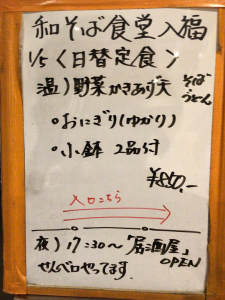 和そば食堂入福
1/5〈日替定食〉
温）野菜かきあげ天 そば うどん
・おにぎり(ゆかり)
・小鉢 2品付
¥850.-
入口こちら
夜）17:30〜「居酒屋」OPEN
せんべろやってます。